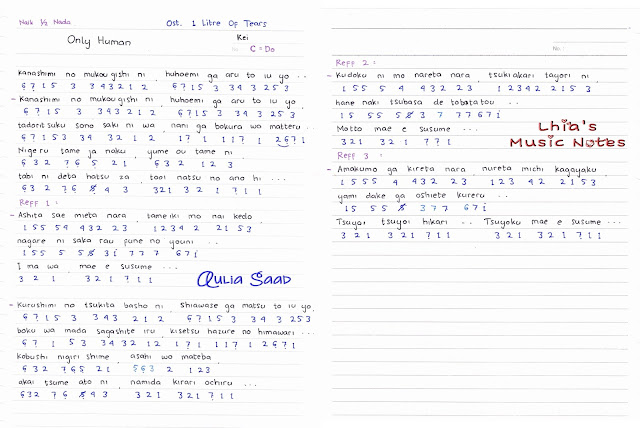 Naik ½ Nada
Ost. 1 Litre Of Tears
Only Human
Kei
No :
C = Do
kanashimi no mukou gishi ni , huhoemi ga aru to iu yo ...
6 7 1 5 3 3 3 4 3 2 1 2 6 7 1 5 3 3 4 3 2 5 3
- Kanashimi no mukou gishi ni , huhoemi ga aru to iu yo ...
6 7 1 5 3 3 4 3 2 1 2 6 7 1 5 3 3 4 3 2 5 3
tadoritsuku sono saki ni wa , nani ga bokura wo matteru ...
6 7 1 5 3 3 4 3 2 1 2 1 7 1 1 1 7 1 2 6 7 1
Nigeru tame ja naku , yume ou tame ni
6 3 2 7 6 5 2 1 6 3 2 1 2 3
tabi ni deta hatsu za , tooi natsu no ano hi ...
6 3 2 7 6 5 4 3 3 2 1 3 2 1 7 1 1
Reff 1 :
- Ashita sae mieta nara , tameiki mo nai kedo
1 5 5 5 4 4 3 2 2 3 1 2 3 4 2 2 1 5 3
nagare ni saka rau fune no youni ..
1 5 5 5 5 5 3 i 7 7 7 6 7 i
I ma wa mae e susume ...
3 2 1 3 2 1 7 1 1
Aulia Saad
- Kurushimi no tsukita basho ni , Shiawase ga matsu to iu yo
6 7 1 5 3 3 4 3 2 1 2 6 7 1 5 3 3 4 3 2 5 3
boku wa mada sagashite iru , kisetsu hazure no himawari ...
6 7 1 5 3 3 4 3 2 1 2 1 7 1 1 1 7 1 2 6 7 1
kobushi nigiri shime , asahi wo mateba
6 3 2 7 6 5 2 1 5 6 3 2 1 2 3
akai tsume ato ni , namida kirari ochiru ...
6 3 2 7 6 5 4 3 3 2 1 3 2 1 7 1 1
No.:
Reff 2 :
- Kudoku ni mo nareta nara , tsukiakari tayori ni
1 5 5 5 4 4 3 2 2 3 1 2 3 4 2 2 1 5 3
hane naki tsubasa de tobatatou ..
1 5 5 5 5 3 7 7 7 6 7 i
Motto mae e susume ...
3 2 1 3 2 1 7 7 1
Lhia's
Music Notes
Reff 3 :
- Amakumo ga kireta nara , nureta michi kagayaku
1 5 5 5 4 4 3 2 2 3 1 2 3 4 2 2 1 5 3
yami dake ga oshiete kureru ..
1 5 5 5 5 3 7 7 6 7 i
Tsuyoi tsuyoi hikari .. , Tsuyoku mae e susume ...
3 2 1 3 2 1 7 1 1 3 2 1 3 2 1 7 1 1